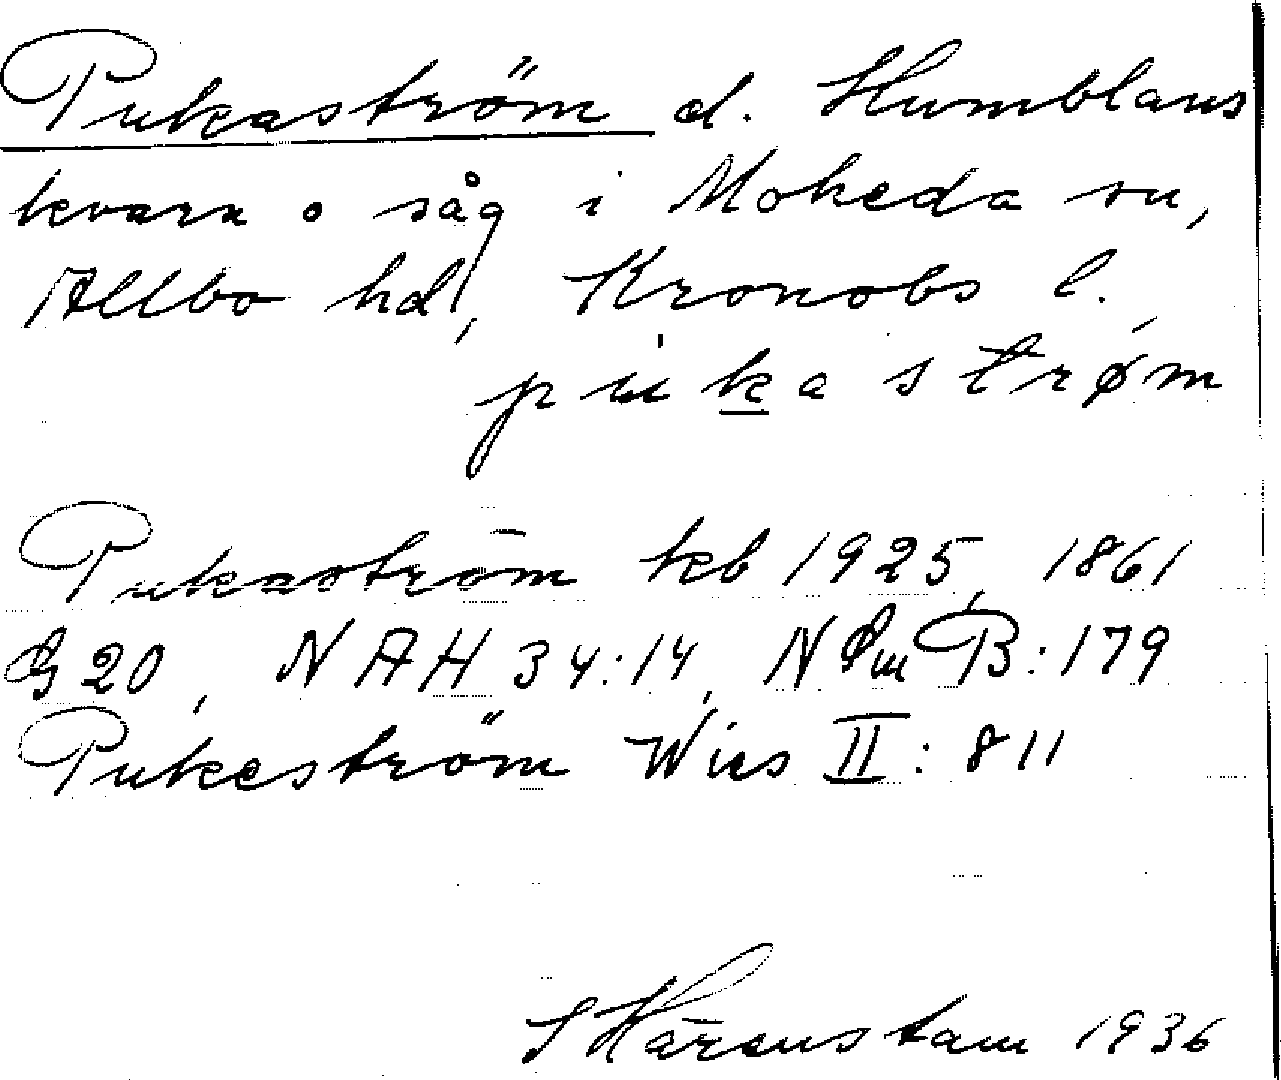 Pukaström d. Humblaus
kvarn o såg i Moheda sn,
Allbo hd, Kronobs l.
pu̍ka strø̍m
Pukaström kb 1925, 1861
G 20, NAH 34:14, N Sm B:179
Pukeström Wies II: 811
S Härenstam 1936